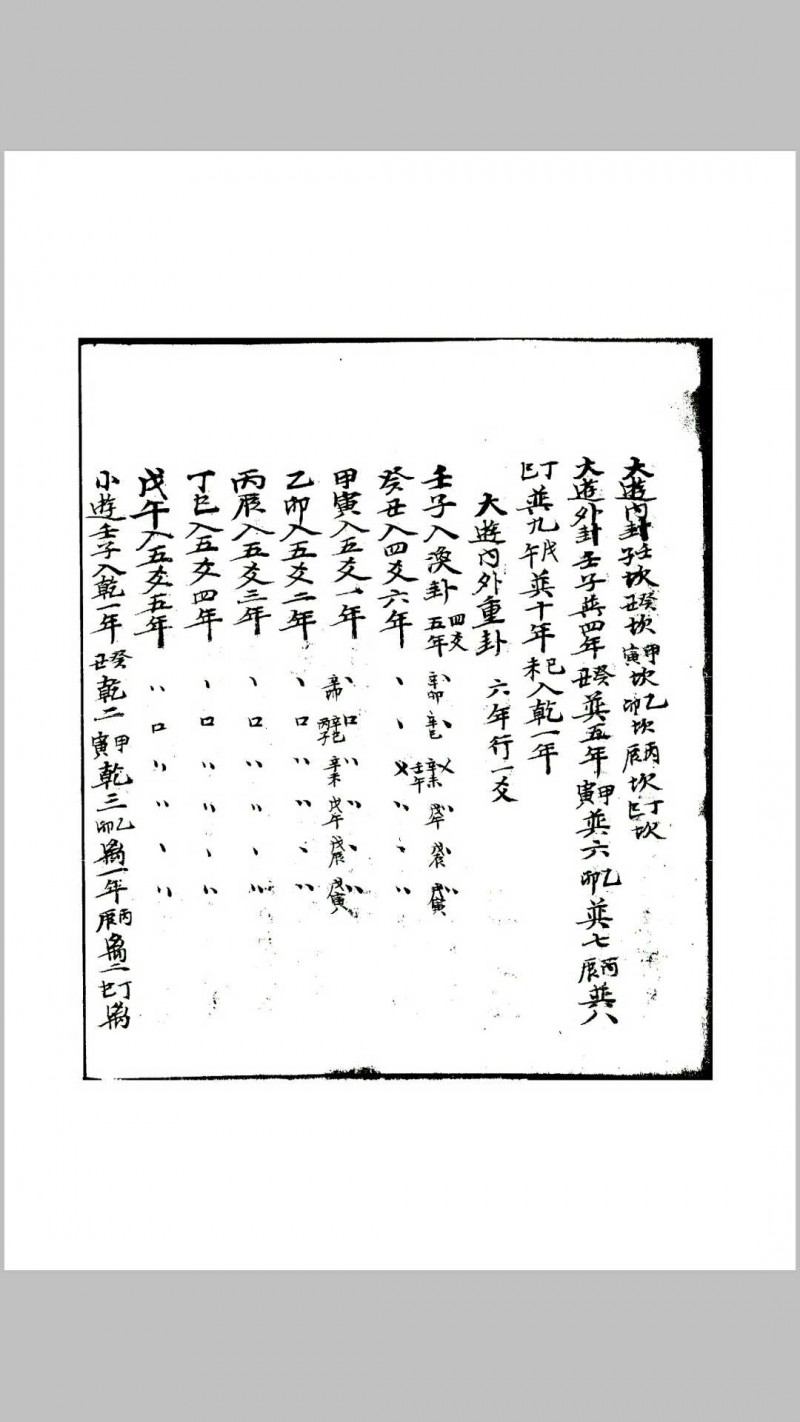 大遊内卦壬子坎癸丑坎甲寅坎乙卯坎丙辰坎丁巳坎
大遊外卦壬子巽四年癸丑巽五年甲寅巽六乙卯巽七丙辰巽八
丁巳巽九戊午巽十年己未入乾一年
大遊内外重卦 六年行一爻
壬子入渙卦四爻五年 辛卯 辛巳 辛未 壬午 戊午 戊辰 戊寅
癸丑入四爻六年
甲寅入五爻一年 辛卯 辛巳 丙子 辛未 戊午 戊辰 戊寅
乙卯入五爻二年
丙辰入五爻三年
丁巳入五爻四年
戊午入五爻五年
小遊壬子入乾一年癸丑乾二甲寅乾三乙卯离一年丙辰离二丁巳离